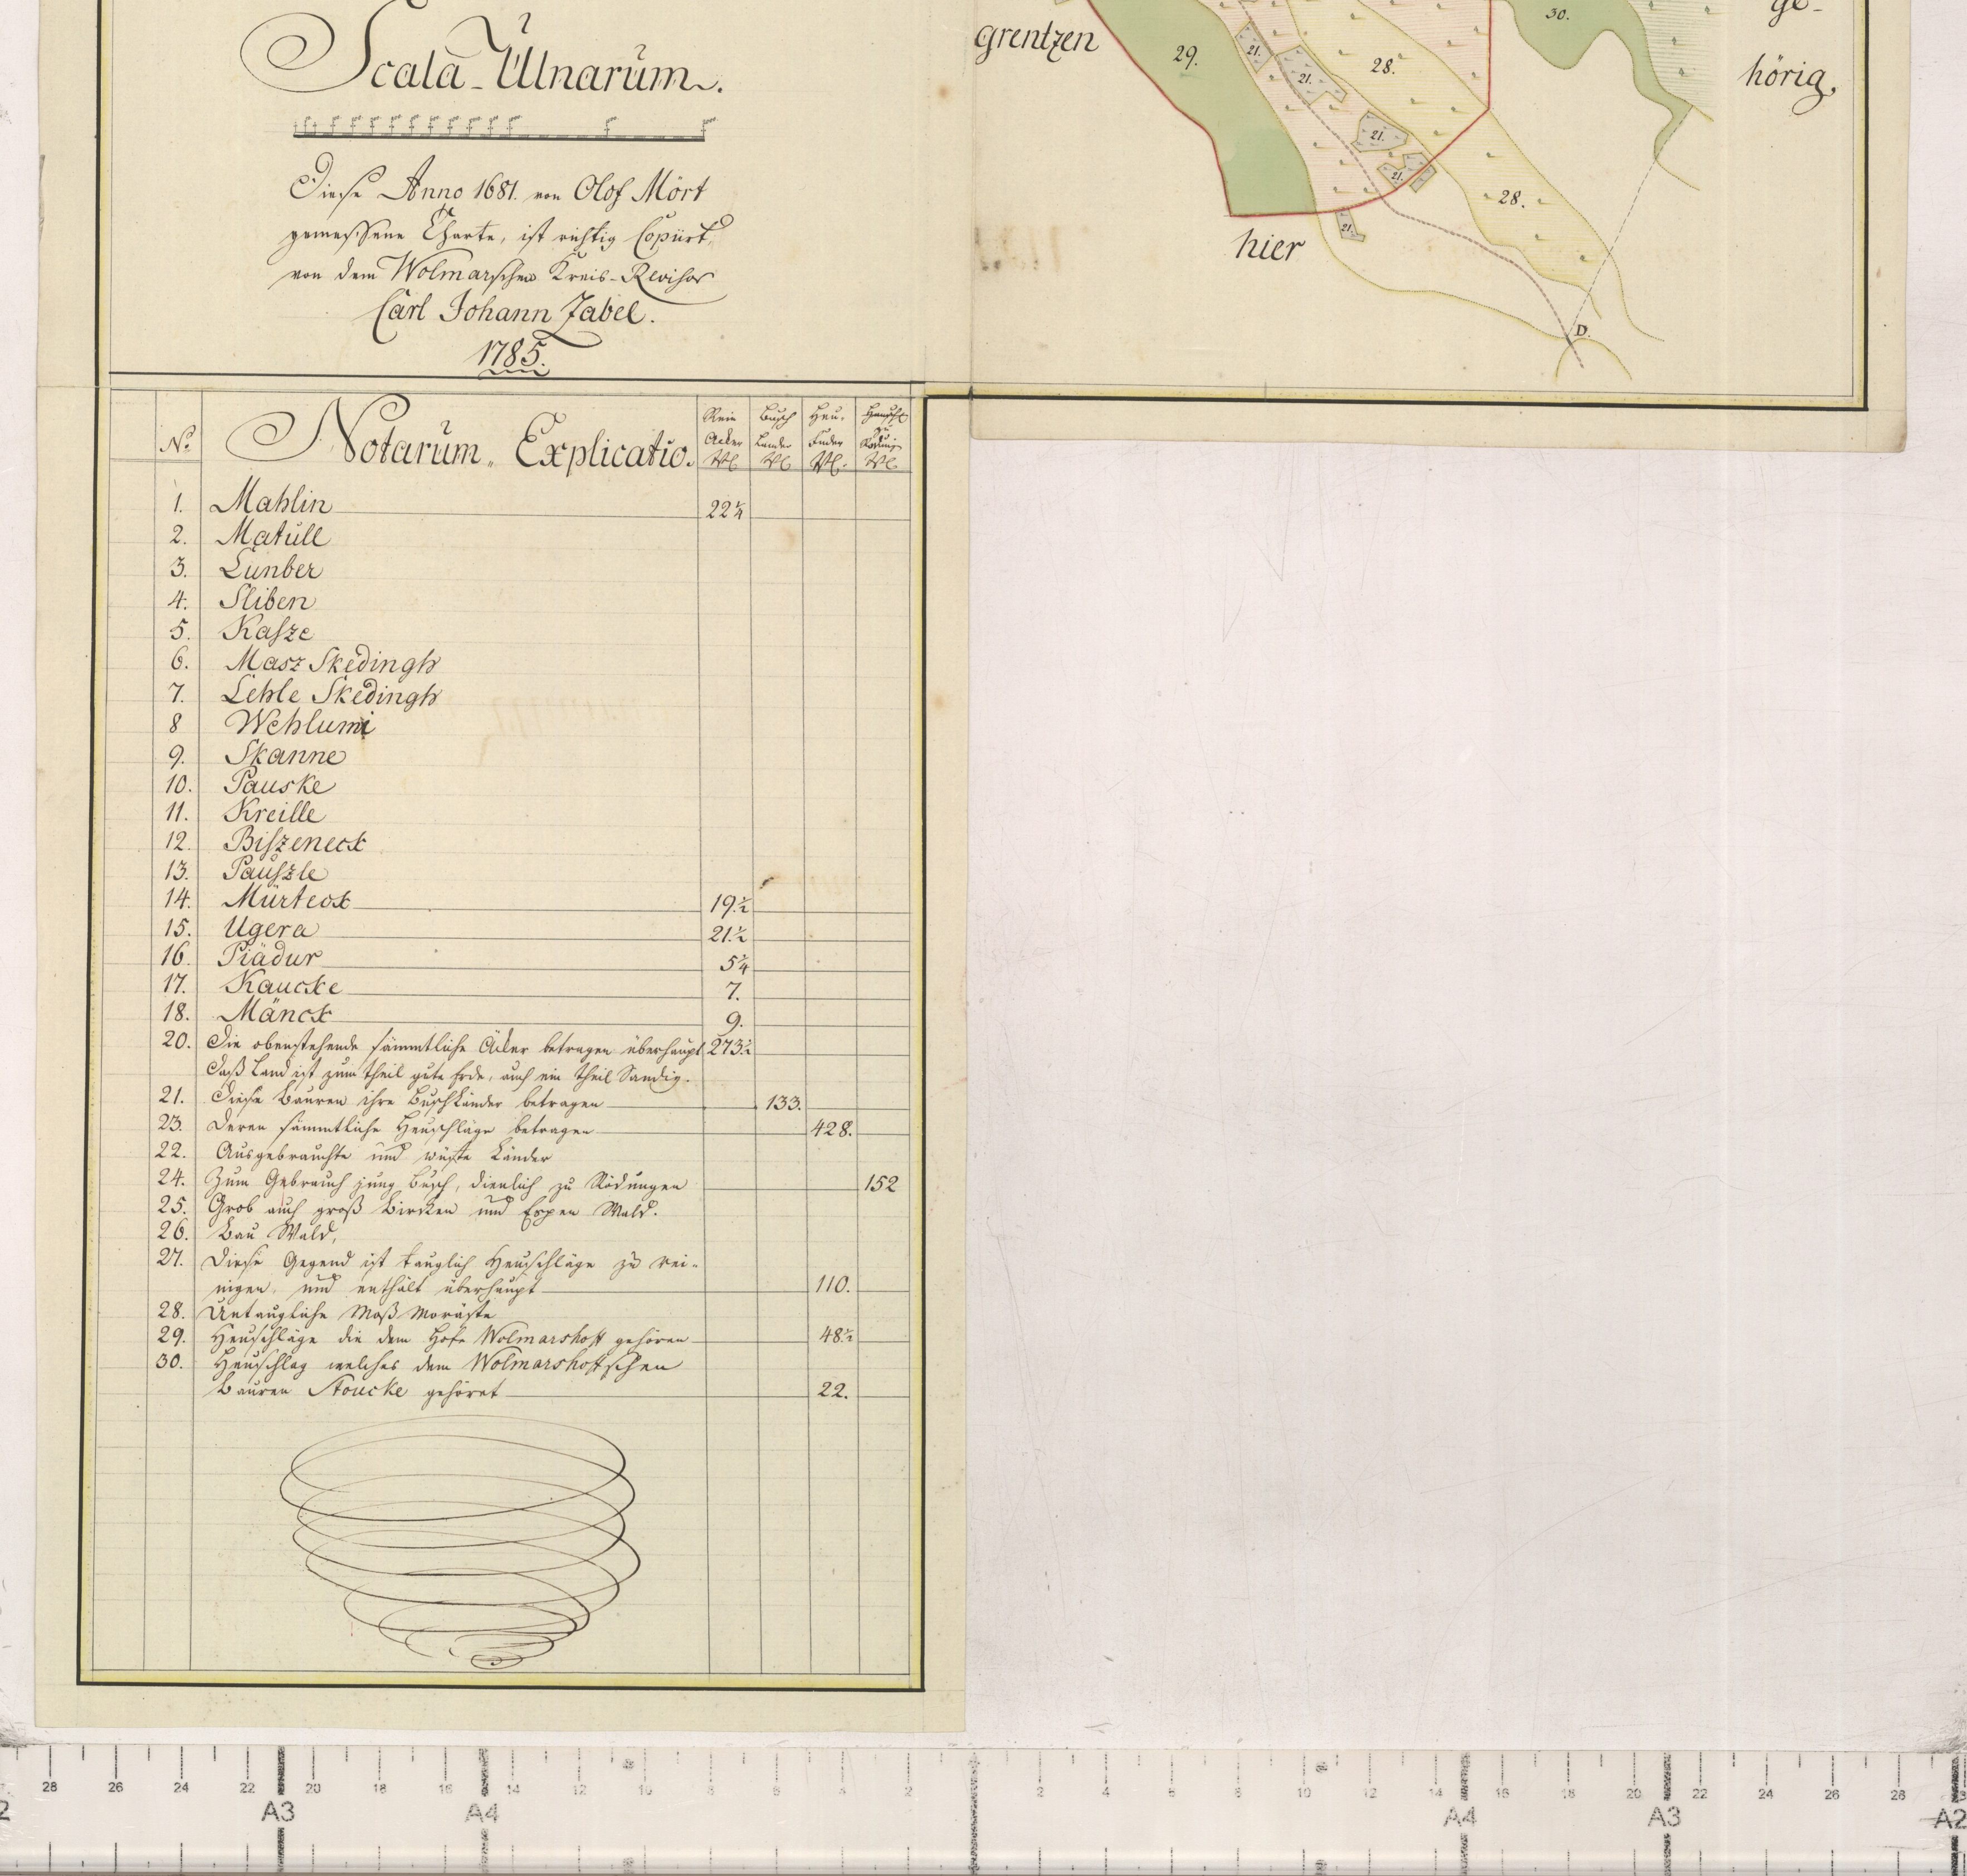 Scala Ulnarum.
Diese Anno 1681. von Olof Mört
gemessene Charte, ist richtig Copiirt,
von dem Wolmarschen Kreis-Revisor
Carl Johann Zabel.
1785.
grentzen
hier
ge-
hörig.
29.
21.
21.
28.
21.
21.
21.
28.
30.
D.
No. Notarum Explicatio. Rein Acker Busch Länder Heu- Fuder zu
1. Mahlin 22 1/4
2. Matull
3. Lunber
4. Sliben
5. Kasze
6. Masz Skedingh
7. Lehle Skedingh
8 Wehlumi
9. Skanne
10. Pauske
11. Kreille
12. Biszeneck
13. Pauszle
14. Mürteck 19 1/2
15. Ugera 21 1/2
16. Piädur 5 1/4
17. Kaucke 7.
18. Mänck 9.
20. Die obenstehende sämmtliche Äcker betragen überhaupt 273 1/2
Daß Land ist zum theil gute Erde, auch ein theil Sandig.
21. Diese Bauren ihre Buschländer betragen 133.
23. Deren sämmtliche Heuschläge betragen 428.
22. Ausgebrauchte und wüste Länder
24. Zum Gebrauch jung Busch, dienlich zu Rödungen 152
25. Grob auch groß Bircken und Espen Wald.
26. Bau Wald,
27. Diese Gegend ist tauglich Heuschläge zu rei-
nigen, und enthält überhaupt 110.
28. Untaugliche Moß Moräste
29. Heuschläge die dem Hofe Wolmarshoff gehören 48 1/2
30. Heuschlag welches dem Wolmarshoffschen
Bauren Stoucke gehöret 22.
28 26 24 22 20 18 16 14 12 10 8 6 4 2 2 4 6 8 10 12 14 16 18 20 22 24 26 28
A3 A4 A4 A3 A2